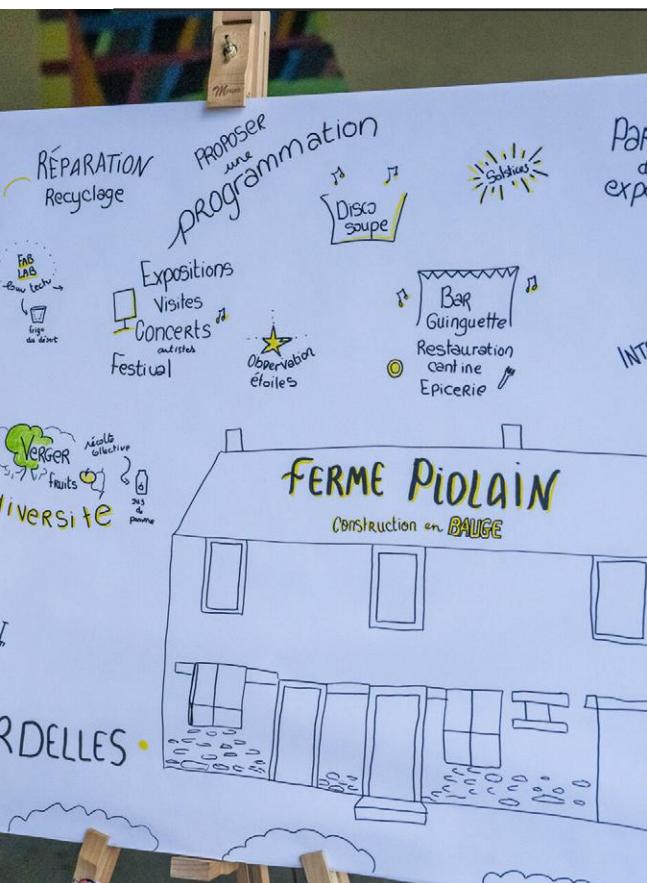 RÉPARATION
Recyclage
PROPOSER
une
programmation
Disco
soupe
Solstices
FAB
LAB
low tech
frigo
du désert
Expositions
Visites
Concerts
artistes
Festival
Observation
étoiles
Bar
Guinguette
Restauration
cantine
Epicerie
VERGER
récolte
collective
fruits
jus
de
pomme
iversité
FERME PIOLAIN
Construction en BAUGE
RDELLES